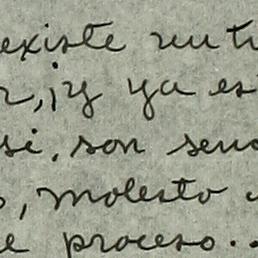 existe un
, ¡y ya es
si, son
, molesto
e proceso..